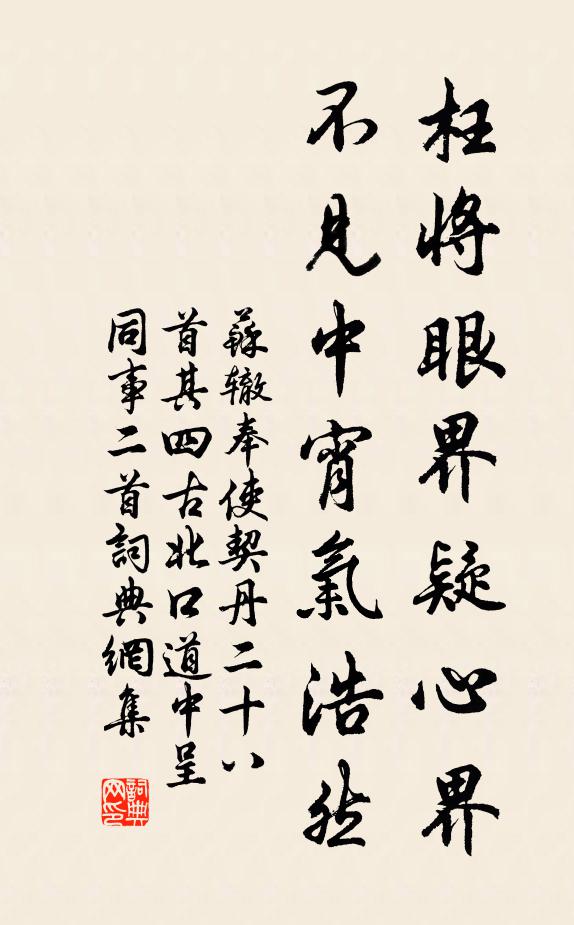 枉將眼界疑心界
不見中宵氣浩然
蘇辙奉使契丹二十八
首其四古北口道中呈
同事二首詞典網集
詞典网印